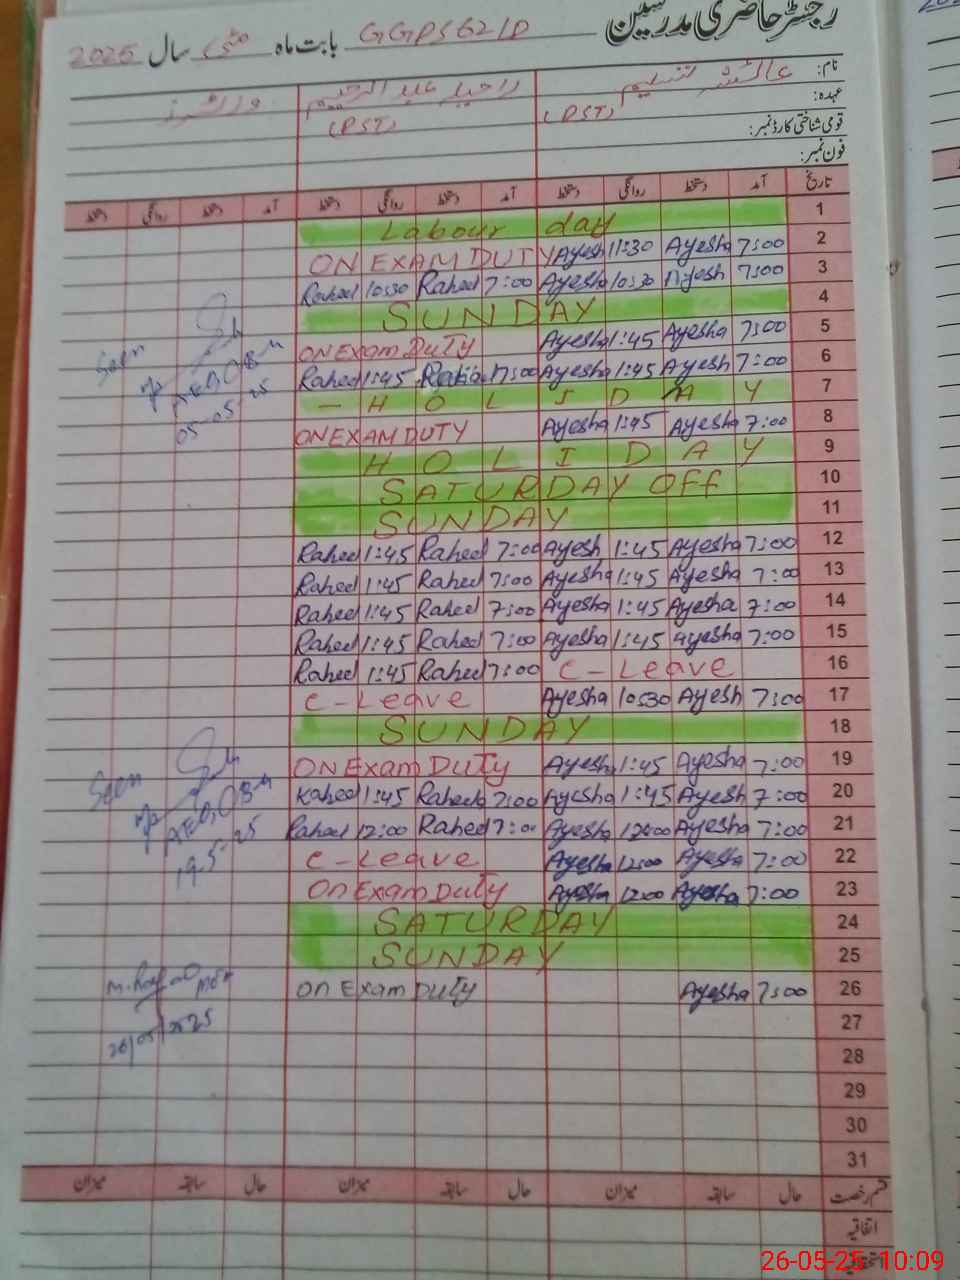 رجسٹر حاضری مدرسین
بابت ماہ GGPS 621D مئی سال 2025
نام: عائشہ تسنیم
عہدہ: (PST) (PST)
قومی شناختی کارڈ نمبر:
فون نمبر:
تاریخ آمد دستخط روانگی دستخط آمد دستخط روانگی دستخط آمد دستخط روانگی دستخط
Labour day 1
ON EXAM DUTY Ayesh 11:30 Ayesha 7:00 2
Raheel 10:30 Raheel 7:00 Ayesha 10:30 Ayesh 7:00 3
SUNDAY 4
ON Exam Duty Ayesha 1:45 Ayesha 7:00 5
Raheel 1:45 7:00 Ayesha 1:45 Ayesha 7:00 6
- HOLIDAY 7
ON EXAM DUTY Ayesha 1:45 Ayesha 7:00 8
HOLIDAY 9
SATURDAY OFF 10
SUNDAY 11
Raheel 1:45 Raheel 7:00 Ayesh 1:45 Ayesha 7:00 12
Raheel 1:45 Raheel 7:00 Ayesha 1:45 Ayesha 7:00 13
Raheel 1:45 Raheel 7:00 Ayesha 1:45 Ayesha 7:00 14
Raheel 1:45 Raheel 7:00 Ayesha 1:45 Ayesha 7:00 15
Raheel 1:45 Raheel 7:00 C-Leave 16
C-Leave Ayesha 10:30 Ayesh 7:00 17
SUNDAY 18
ON Exam Duty Ayesha 1:45 Ayesha 7:00 19
Raheel 1:45 Raheel 7:00 Ayesha 1:45 Ayesh 7:00 20
Raheel 12:00 Raheel 7:00 Ayesha 12:00 Ayesha 7:00 21
C-Leave Ayesha 12:00 Ayesha 7:00 22
On Exam Duty Ayesha 12:00 Ayesha 7:00 23
SATURDAY 24
SUNDAY 25
on Exam Duty Ayesha 7:00 26
27
28
29
30
31
Seen
05-05-25
Seen
19-5-25
26/05/2025
قسم رخصت حال سابقہ میزان حال سابقہ میزان حال سابقہ میزان
اتفاقیہ
26-05-25 10:09